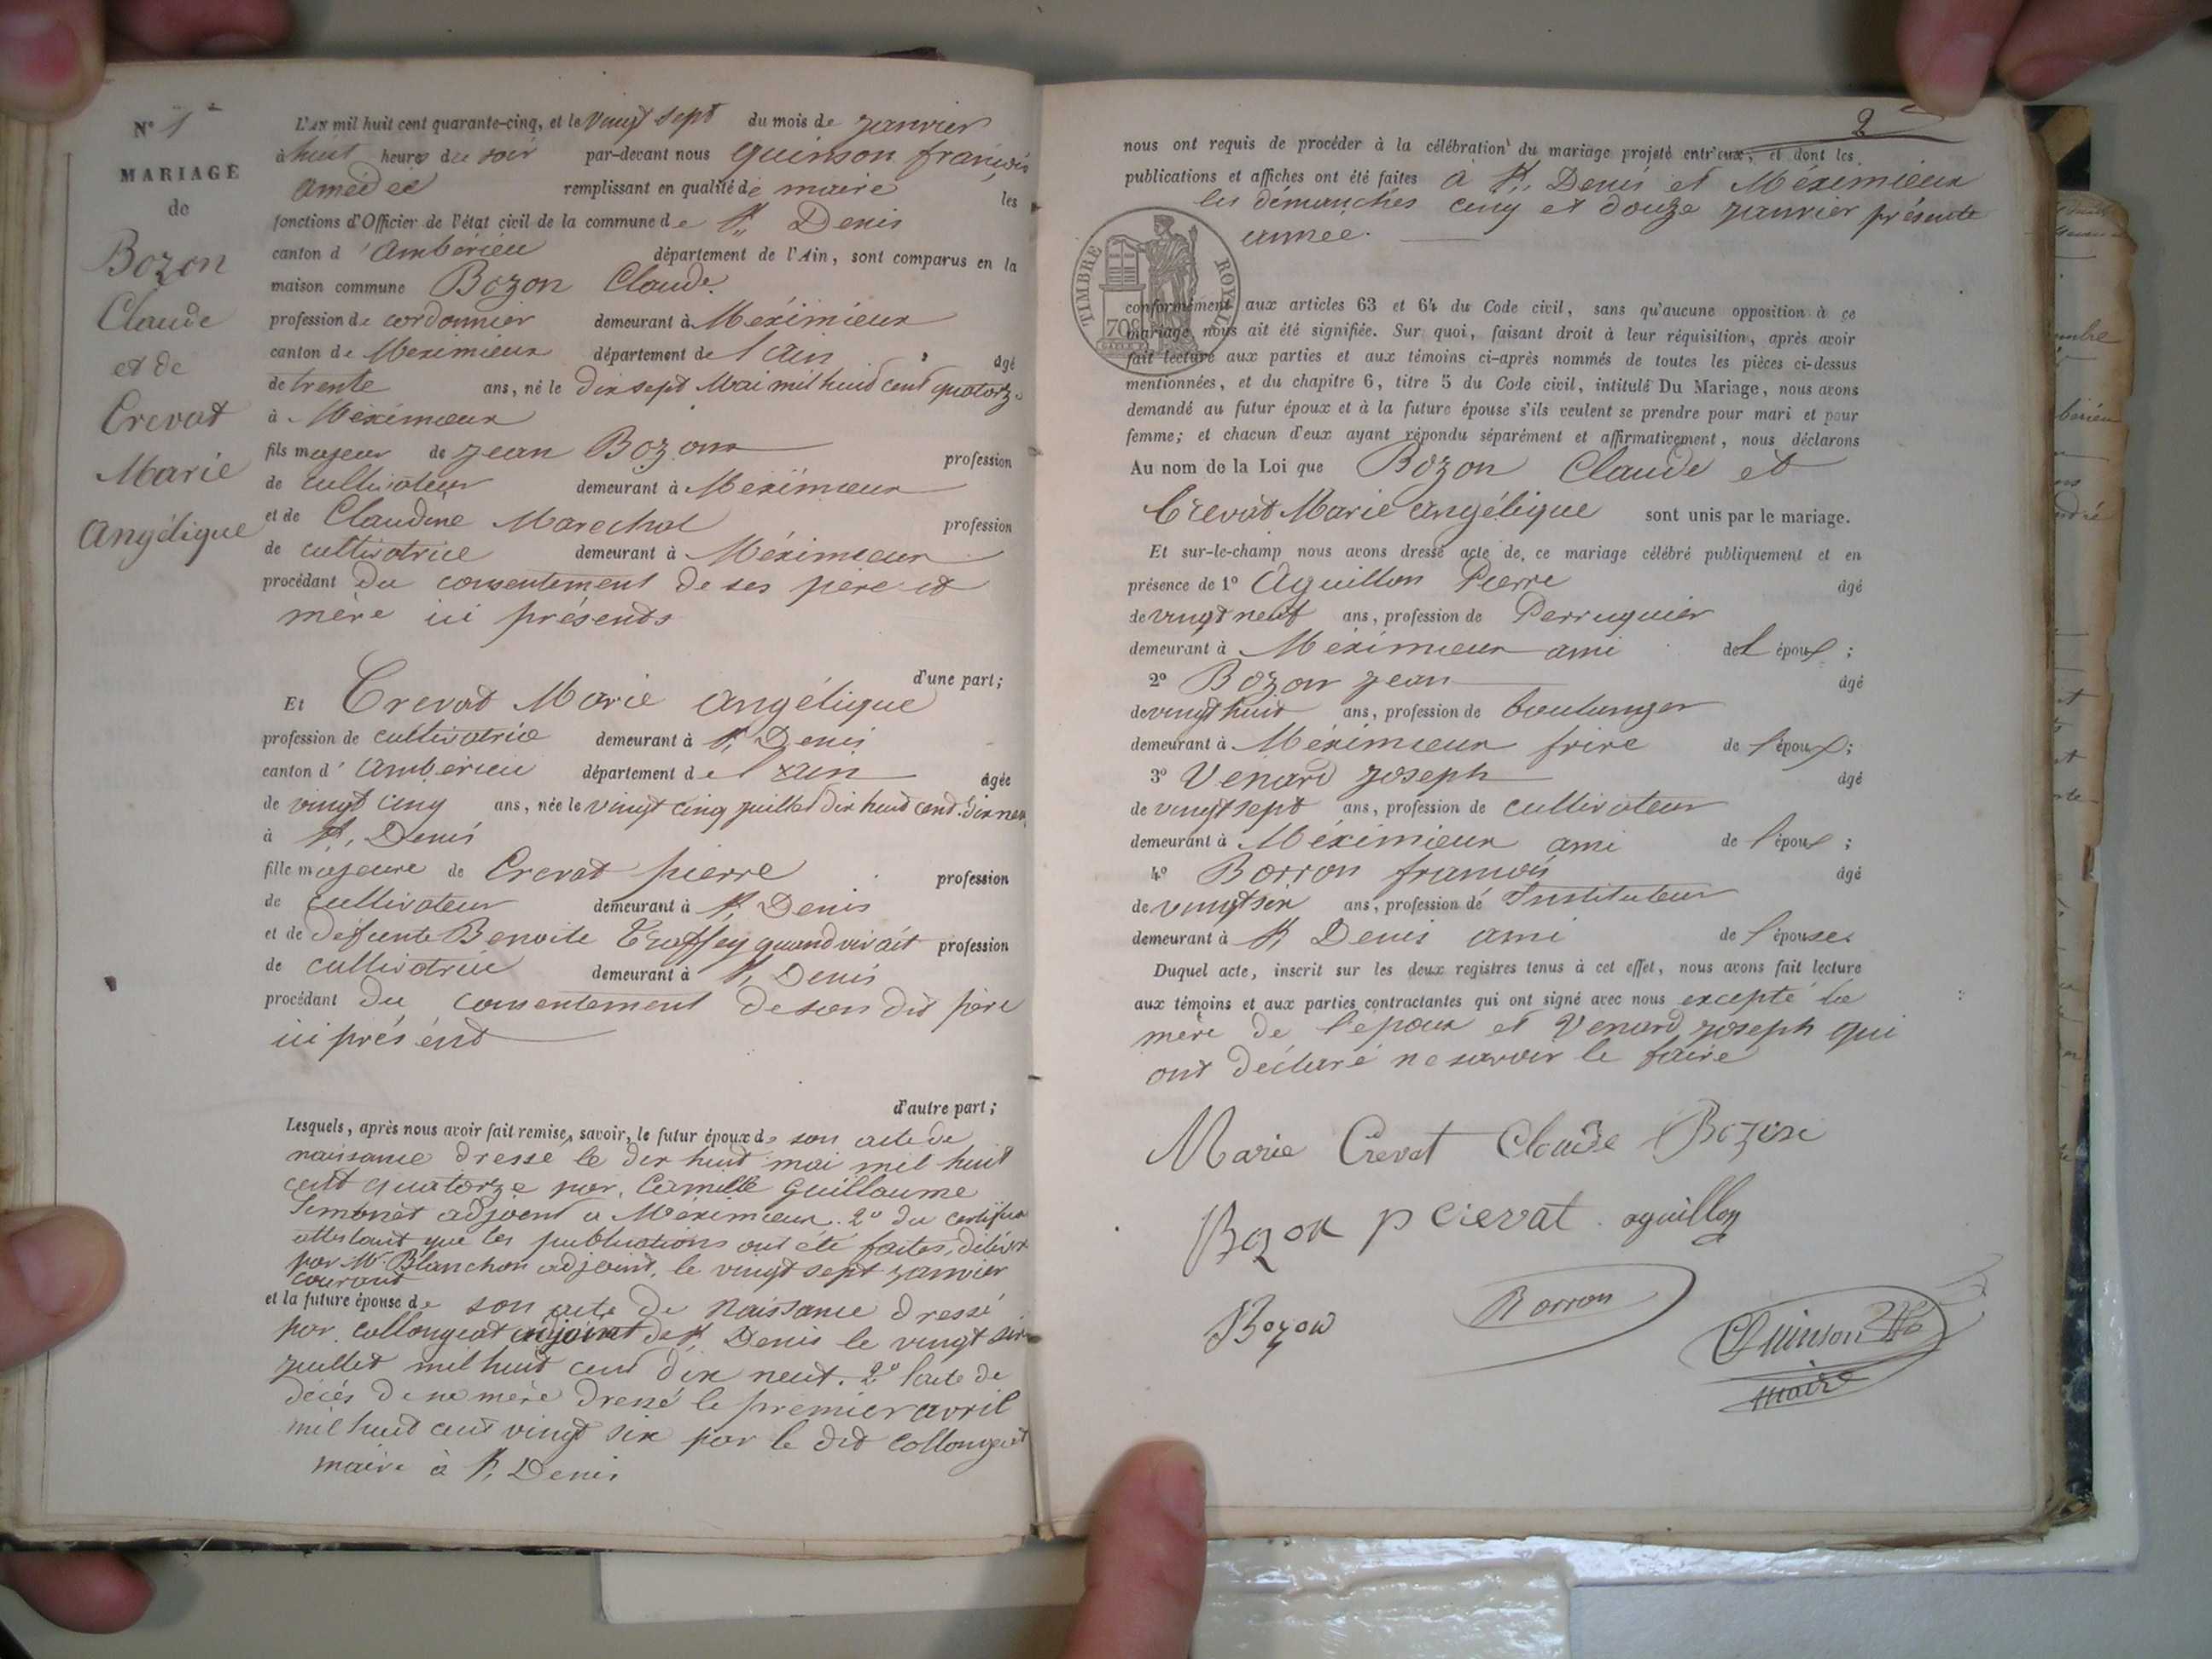 N° 1
MARIAGE
de
Bozon
Claude
et de
Crevat
Marie
Angélique
L'AN mil huit cent quarante-cinq, et le vingt sept du mois de janvier
à huit heures du soir par-devant nous Quinson françois
amédée remplissant en qualité de maire les
fonctions d'Officier de l'état civil de la commune de St Denis
canton d'Ambérieu département de l'Ain, sont comparus en la
maison commune Bozon Claude
profession de cordonnier demeurant à Méximieux
canton de Meximieux département de l'ain âgé
de trente ans, né le dix sept Mai mil huit cent quatorze
à Méximieux
fils majeur de jean Bozon profession
de cultivateur demeurant à Méximieux
et de Claudine Marechal profession
de cultivatrice demeurant à Méximieux
procédant du consentement de ses père et
mère ici présents
d'une part;
Et Crevat Marie angélique
profession de cultivatrice demeurant à St Denis
canton d'Ambérieu département de l'ain âgée
de vingt cinq ans, née le vingt cinq juillet dix huit cent dix neuf
à St Denis
fille majeure de Crevat pierre profession
de cultivateur demeurant à St Denis
et de défunte Benoite quand vivait profession
de cultivatrice demeurant à St Denis
procédant du consentement de son dit père
ici présent
d'autre part;
Lesquels, après nous avoir fait remise, savoir, le futur époux de son acte de
naissance dressé le dix huit mai mil huit
cent quatorze par Camille Guillaume
adjoint à Méximieux. 2° du certificat
attestant que les publications ont été faites, délivré
par Mr Blanchon adjoint, le vingt sept janvier
courant
et la future épouse de son acte de naissance dressé
par Collongeat adjoint de St Denis le vingt six
juillet mil huit cent dix neuf. 2° l'acte de
décès de sa mère dressé le premier avril
mil huit cent vingt six par le dit Collongeat
maire à St Denis
2
nous ont requis de procéder à la célébration du mariage projeté entr'eux, et dont les
publications et affiches ont été faites à St Denis et Méximieux
les dimanches cinq et douze janvier présente
année.
TIMBRE ROYAL
conformément aux articles 63 et 64 du Code civil, sans qu'aucune opposition à ce
mariage nous ait été signifiée. Sur quoi, faisant droit à leur réquisition, après avoir
fait lecture aux parties et aux témoins ci-après nommés de toutes les pièces ci-dessus
mentionnées, et du chapitre 6, titre 5 du Code civil, intitulé Du Mariage, nous avons
demandé au futur époux et à la future épouse s'ils veulent se prendre pour mari et pour
femme; et chacun d'eux ayant répondu séparément et affirmativement, nous déclarons
Au nom de la Loi que Bozon Claude et
Crevat Marie angélique sont unis par le mariage.
Et sur-le-champ nous avons dressé acte de ce mariage célébré publiquement et en
présence de 1° Aguillon Pierre âgé
de vingt neuf ans, profession de Perruquier
demeurant à Méximieux ami de l'époux;
2° Bozon jean âgé
de vingt huit ans, profession de boulanger
demeurant à Méximieux frère de l'époux;
3° Vénard joseph âgé
de vingt sept ans, profession de cultivateur
demeurant à Méximieux ami de l'époux;
4° Borron françois âgé
de vingt six ans, profession de Instituteur
demeurant à St Denis ami de l'épouse.
Duquel acte, inscrit sur les deux registres tenus à cet effet, nous avons fait lecture
aux témoins et aux parties contractantes qui ont signé avec nous excepté la
mère de l'époux et Venard joseph qui
ont déclaré ne savoir le faire
Marie Crevat Claude Bozon
Bozon p crevat aguillon
Bozon Borron Quinson
maire